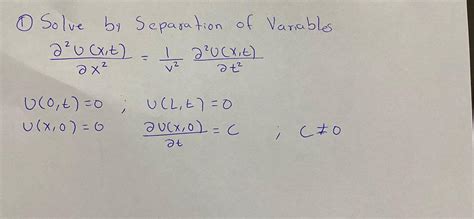 ① Solve by Separation of Variables
∂²U(x,t)/∂x² = 1/v² ∂²U(x,t)/∂t²
U(0,t)=0 ; U(L,t)=0
U(x,0)=0 ∂U(x,0)/∂t = C ; C≠0